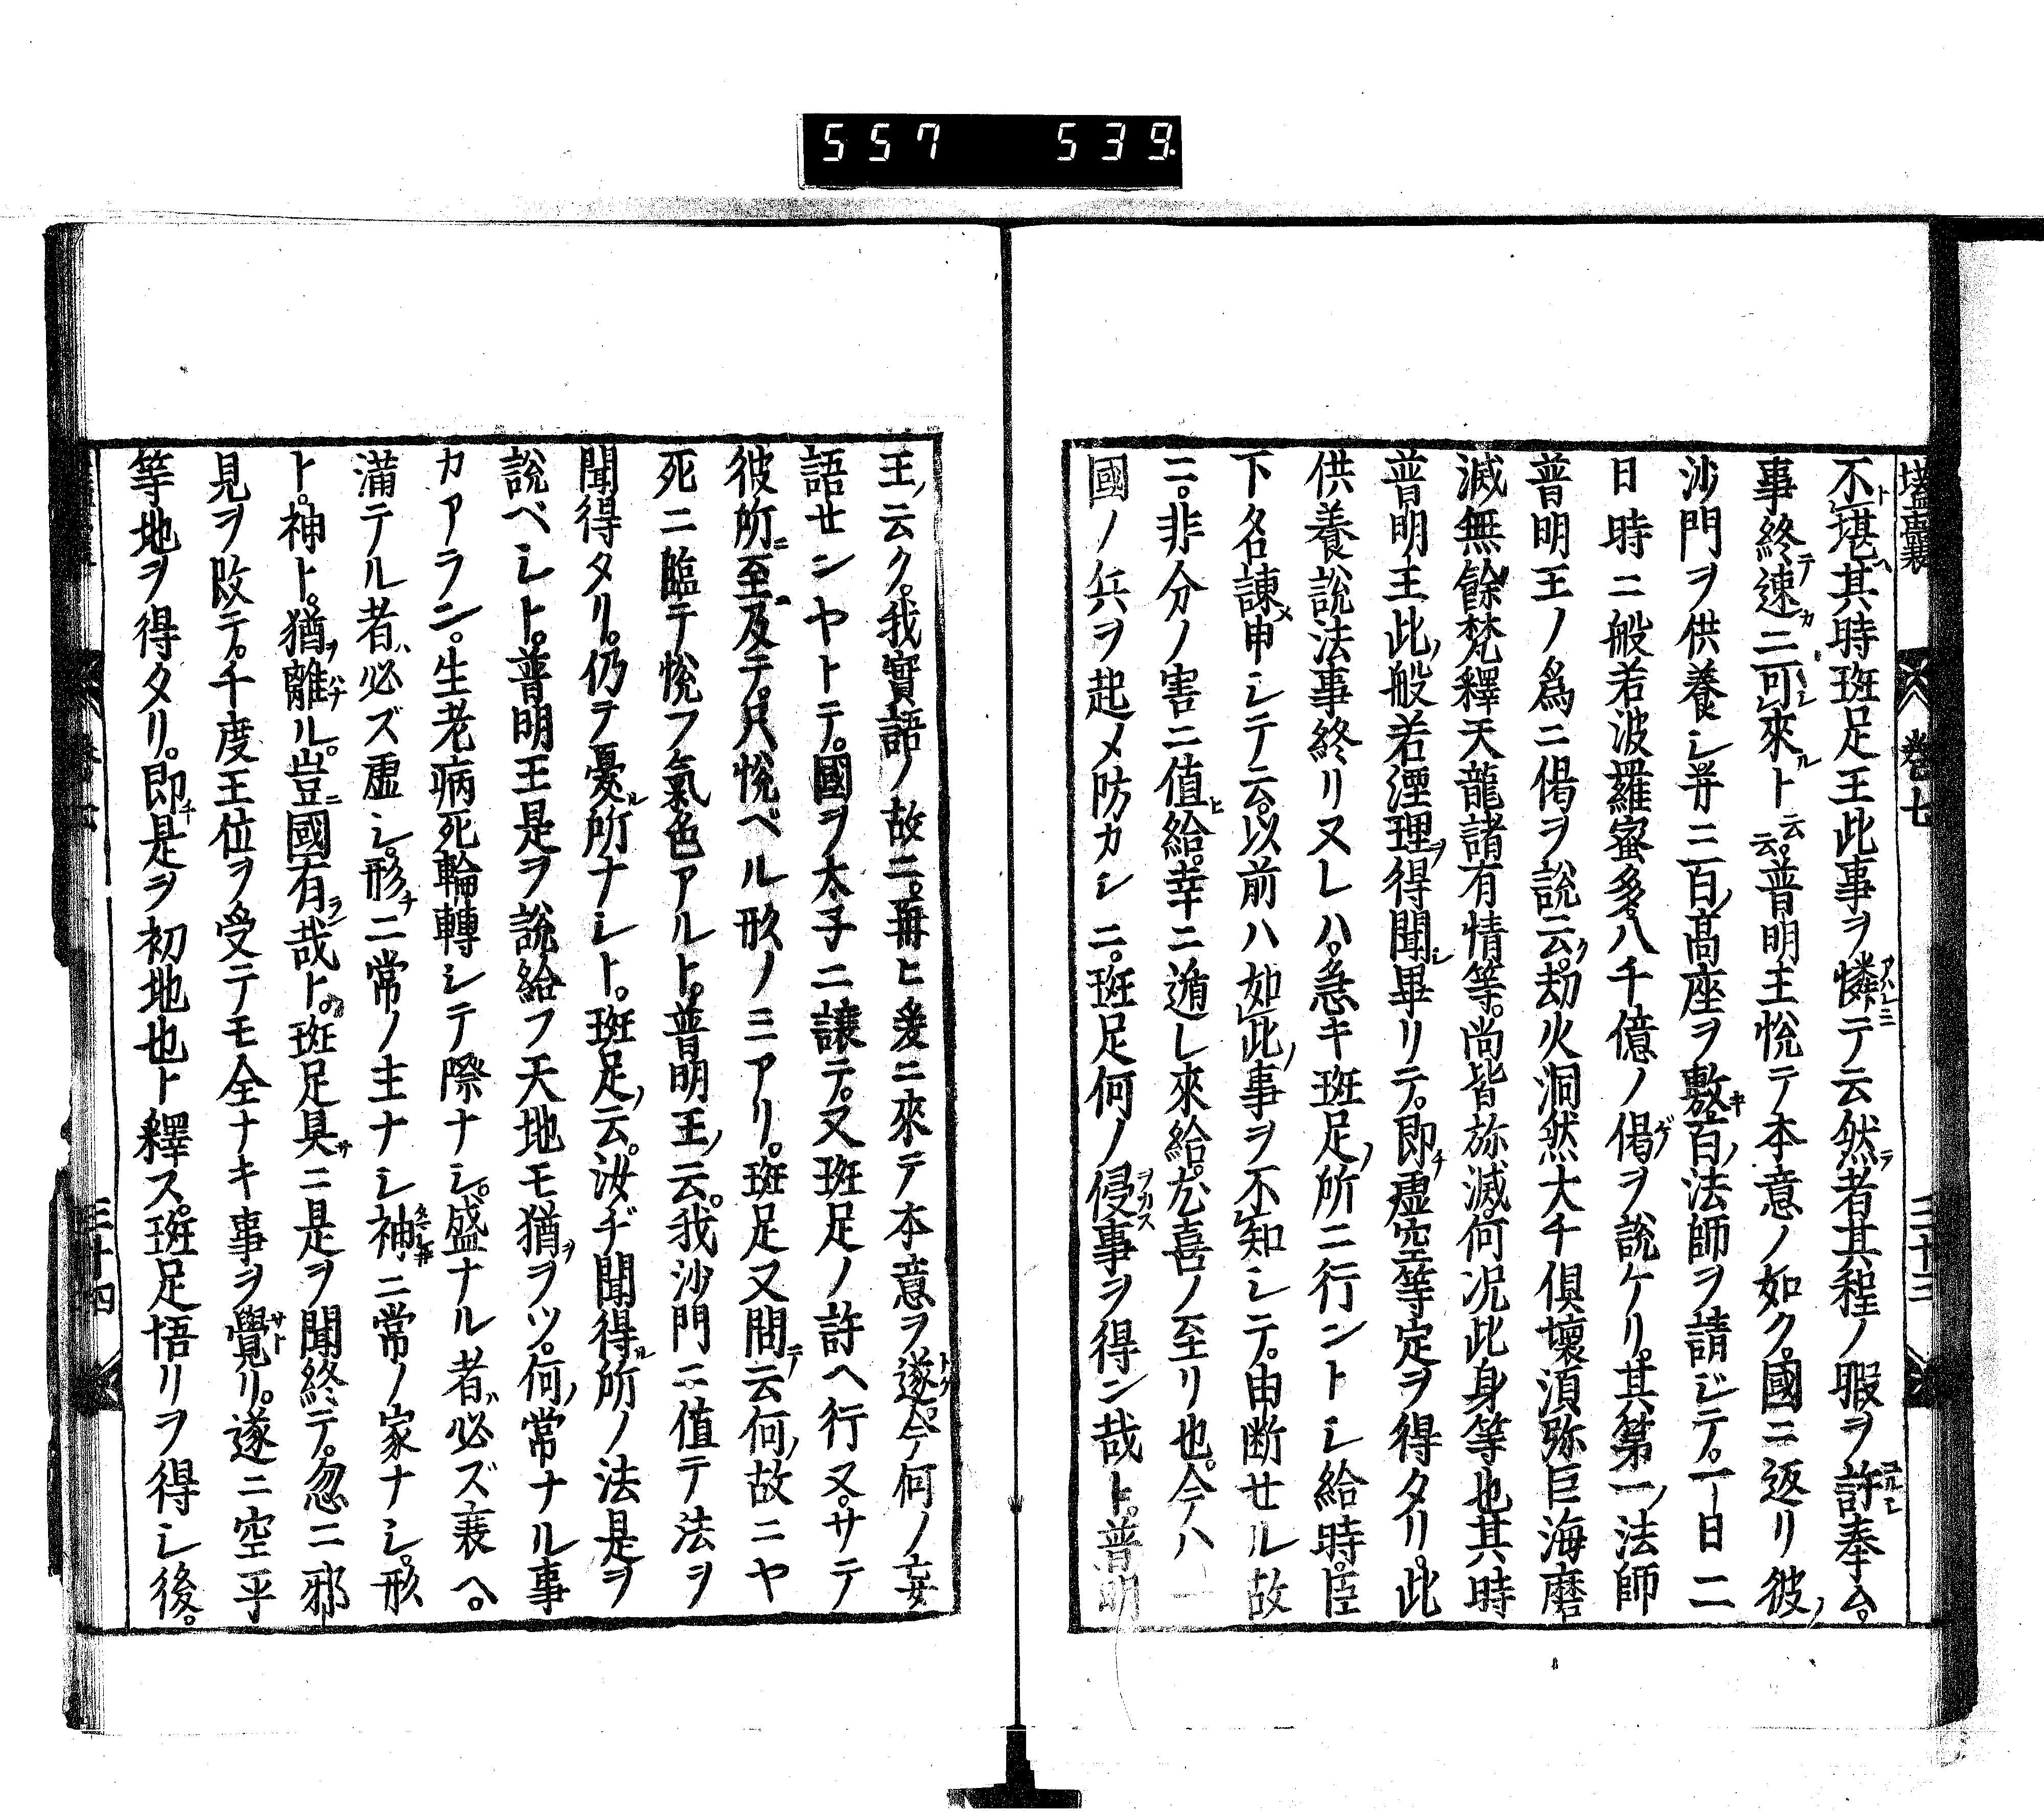 557 539.
壒囊 巻七 三十三
不堪其時班足王此事ヲ憐テ云然者其程ノ暇ヲ許奉ム。
事終速ニ可來ト云云。普明王悅テ本意ノ如ク。國ニ返リ彼ノ
沙門ヲ供養シ并ニ百ノ高座ヲ敷百ノ法師ヲ請ジテ。一日二
日時ニ般若波羅蜜多八千億ノ偈ヲ說ケリ。其第一ノ法師
普明王ノ爲ニ偈ヲ說云ク。劫火洞然大千俱壞湏弥巨海磨
滅無餘梵釋天龍諸有情等。尚皆旀滅。何况此身等也其時
普明王此ノ般若湮理ヲ得聞シ畢リテ。即チ虛空等定ヲ得タリ。此
供養說法事終リヌレハ。急キ班足ノ所ニ行ントシ給時。臣
下名諫メ申シテ云。以前ハ如此ノ事ヲ不知シテ。由断セル故
ニ。非分ノ害ニ值ヒ給。幸ニ遁レ來給。尤喜ノ至リ也。今ハ
國ノ兵ヲ起メ防カシニ。班足何ノ侵事ヲ得ン哉ト。普明
王ノ云ク。我實語ノ故ニ。再ヒ爰ニ來テ本意ヲ遂。今何ノ妄
語せンヤトテ。國ヲ太子ニ讓テ。又班足ノ許ヘ行ヌ。サテ
彼所ニ至及テ。只悅ベル形ノミアリ。班足又問テ云何ノ故ニヤ
死ニ臨テ悅フ氣色アルト。普明王ノ云。我沙門ニ值テ法ヲ
聞得タリ。仍テ憂ル所ナシト。班足ノ云。汝ヂ聞得ル所ノ法是ヲ
說ベシト。普明王是ヲ說給フ天地モ猶ヲツ。何ノ常ナル事
カアラン。生老病死輪轉シテ際ナシ。盛ナル者ハ必ズ衰ヘ。
滿テル者ハ必ズ虛シ。形チニ常ノ主ナシ神ニ常ノ家ナシ。形
ト。神ト。猶ヲ離ル。豈ニ國有ラン哉ト。班足具サニ是ヲ聞終テ。忽ニ邪
見ヲ改テ。千度王位ヲ受テモ全ナキ事ヲ覺リ。遂ニ空平
等地ヲ得タリ。即チ是ヲ初地也ト釋ス。班足悟リヲ得シ後。
三十四